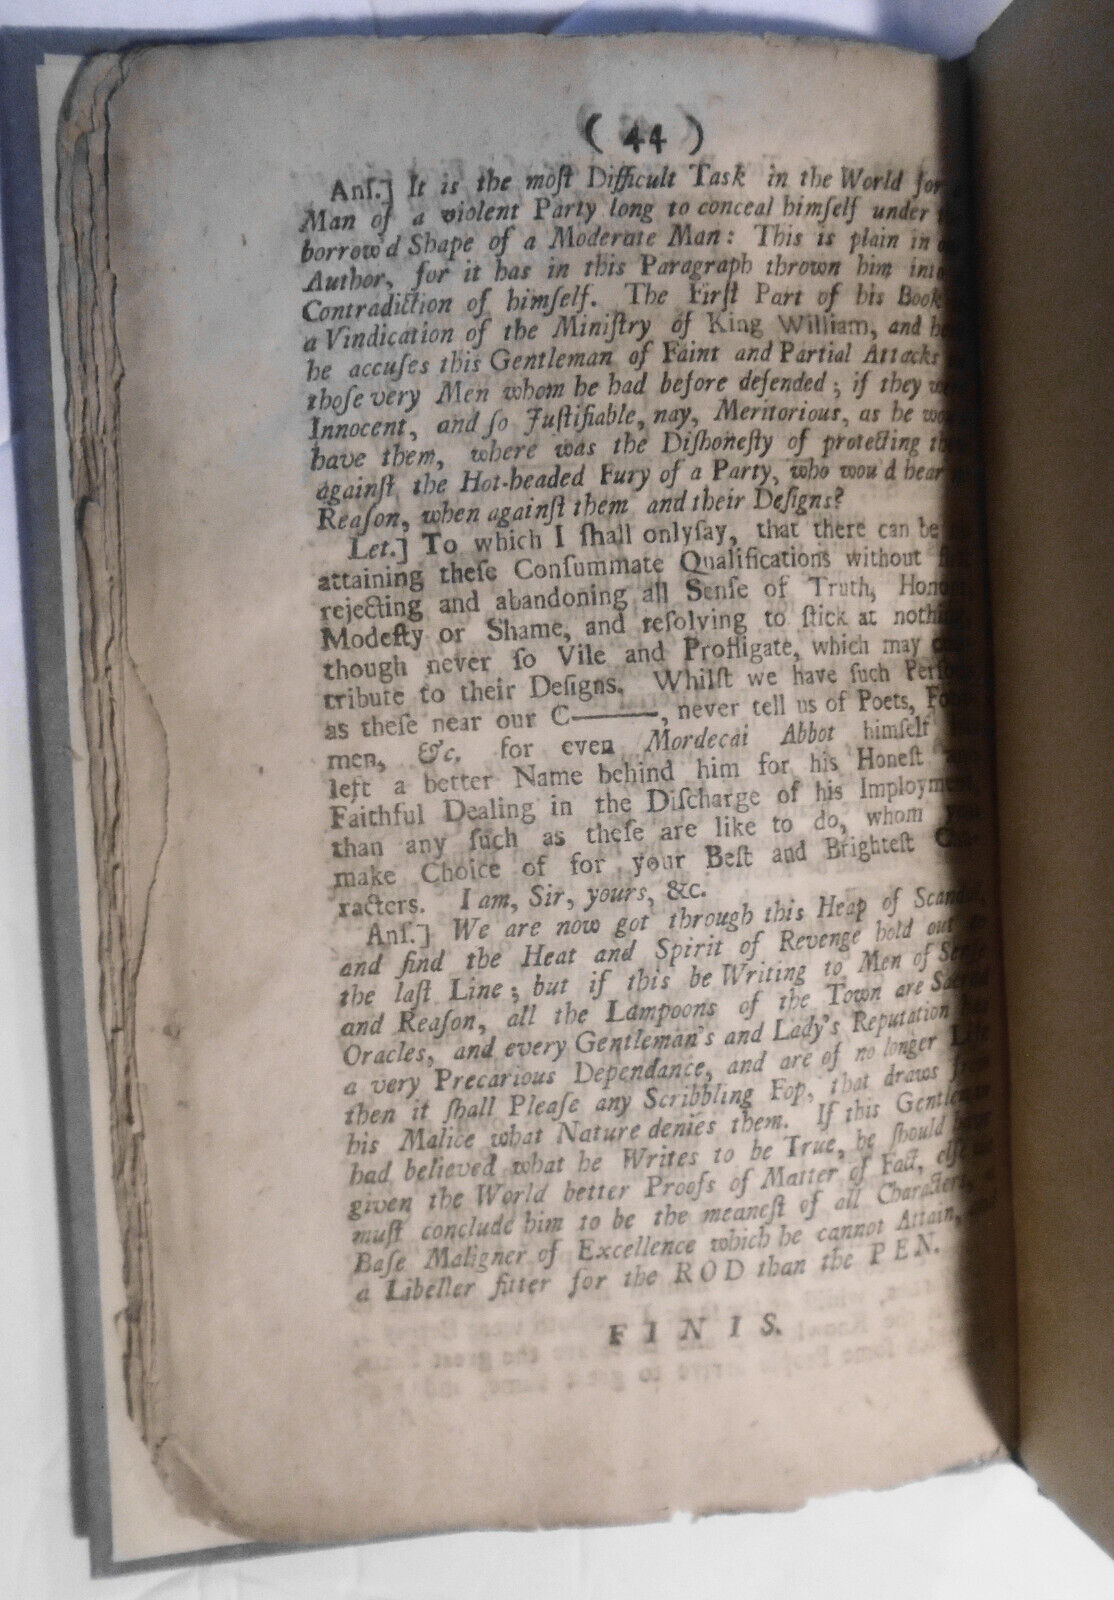 ( 44 )
Anſ.] It is the moſt Difficult Task in the World for
Man of a violent Party long to conceal himſelf under
borrow'd Shape of a Moderate Man: This is plain in
Author, for it has in this Paragraph thrown him into
Contradiction of himſelf. The Firſt Part of his Book
a Vindication of the Miniſtry of King William, and
he accuſes this Gentleman of Faint and Partial Attacks
thoſe very Men whom he had before defended; if they
Innocent, and ſo Juſtifiable, nay, Meritorious, as he
have them, where was the Diſhoneſty of protecting
againſt the Hot-headed Fury of a Party, who wou'd hear
Reaſon, when againſt them and their Deſigns?
Let.] To which I ſhall onlyſay, that there can be
attaining theſe Conſummate Qualifications without
rejecting and abandoning all Senſe of Truth, Honour,
Modeſty or Shame, and reſolving to ſtick at nothing,
though never ſo Vile and Profligate, which may
tribute to their Deſigns. Whilſt we have ſuch Perſons
as theſe near our C———, never tell us of Poets,
men, &c. for even Mordecai Abbot himſelf
left a better Name behind him for his Honeſt
Faithful Dealing in the Diſcharge of his Imployment,
than any ſuch as theſe are like to do, whom you
make Choice of for your Beſt and Brighteſt Cha-
racters. I am, Sir, yours, &c.
Anſ.] We are now got through this Heap of Scandal,
and find the Heat and Spirit of Revenge hold out to
the laſt Line; but if this be Writing to Men of Senſe
and Reaſon, all the Lampoons of the Town are Sacred
Oracles, and every Gentleman's and Lady's Reputation has
a very Precarious Dependance, and are of no longer Life
then it ſhall Pleaſe any Scribbling Fop, that draws from
his Malice what Nature denies them. If this Gentleman
had believed what he Writes to be True, he ſhould have
given the World better Proofs of Matter of Fact, elſe
muſt conclude him to be the meaneſt of all Characters,
Baſe Maligner of Excellence which he cannot Attain,
a Libeller fitter for the ROD than the PEN.
FINIS.